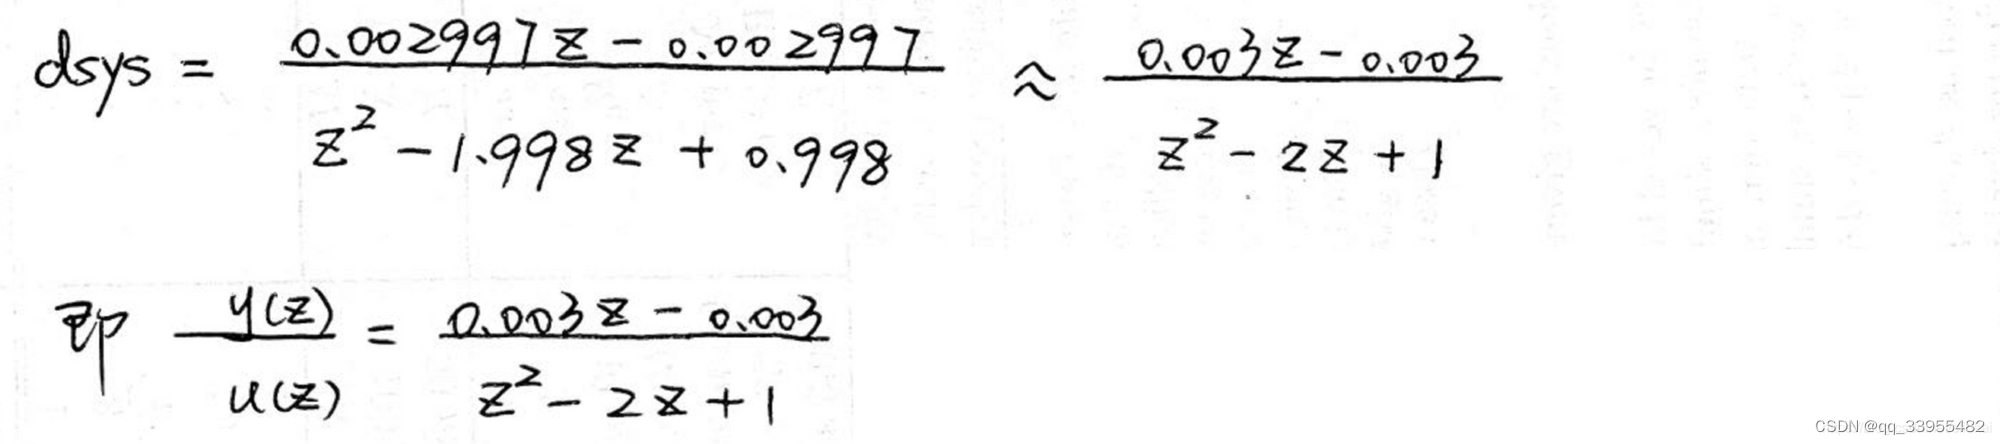 dsys = (0.002997z - 0.002997)/(z² - 1.998z + 0.998) ≈ (0.003z - 0.003)/(z² - 2z + 1)
即 y(z)/u(z) = (0.003z - 0.003)/(z² - 2z + 1)
CSDN @qq_33955482